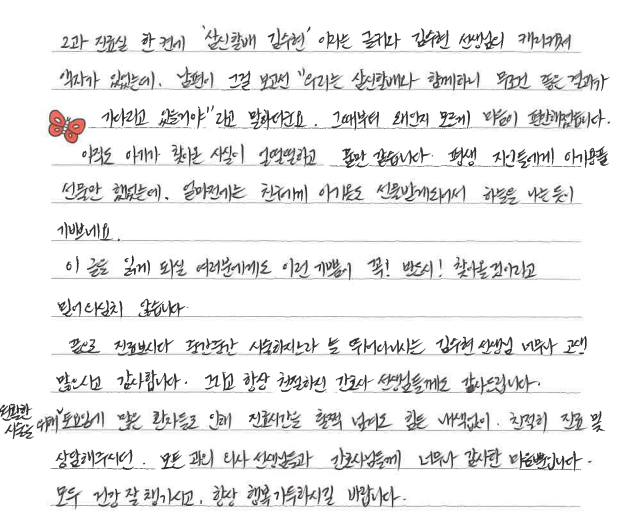 2과 진료실 한 켠에 '삼신할배 김수현' 이라는 글귀와 김수현 선생님의 캐리커쳐
액자가 있었는데, 남편이 그걸 보고선 "우리는 삼신할배와 함께하니 무조건 좋은 결과가
기다리고 있을거야" 라고 말하더군요. 그때부터 왠인지 모르게 마음이 편안해졌습니다.
아직도 아기가 찾아온 사실이 얼떨떨하고 꿈만 같습니다. 평생 지인들에게 아기용품
선물만 했었는데, 얼마전에는 친구에게 아기용품도 선물받게되어서 하늘을 나는 듯이
기쁘네요.
이 글을 읽게 되실 여러분에게도 이런 기쁨이 꼭! 반드시! 찾아올 것이라고
믿어 의심치 않습니다.
끝으로 진료보시다 중간중간 시술하시느라 늘 뛰어다니시는 김수현 선생님 너무나 고생
많으시고 감사합니다. 그리고 항상 친절하신 간호사 선생님들께도 감사드립니다.
원활한
시술을 위해 토요일에 많은 환자들로 인해 진료시간을 훌쩍 넘겨도 힘든 내색없이, 친절히 진료 및
상담해주시던, 모든 과의 의사 선생님들과 간호사님들께 너무나 감사한 마음뿐입니다.
모두 건강 잘 챙기시고, 항상 행복 가득하시길 바랍니다.